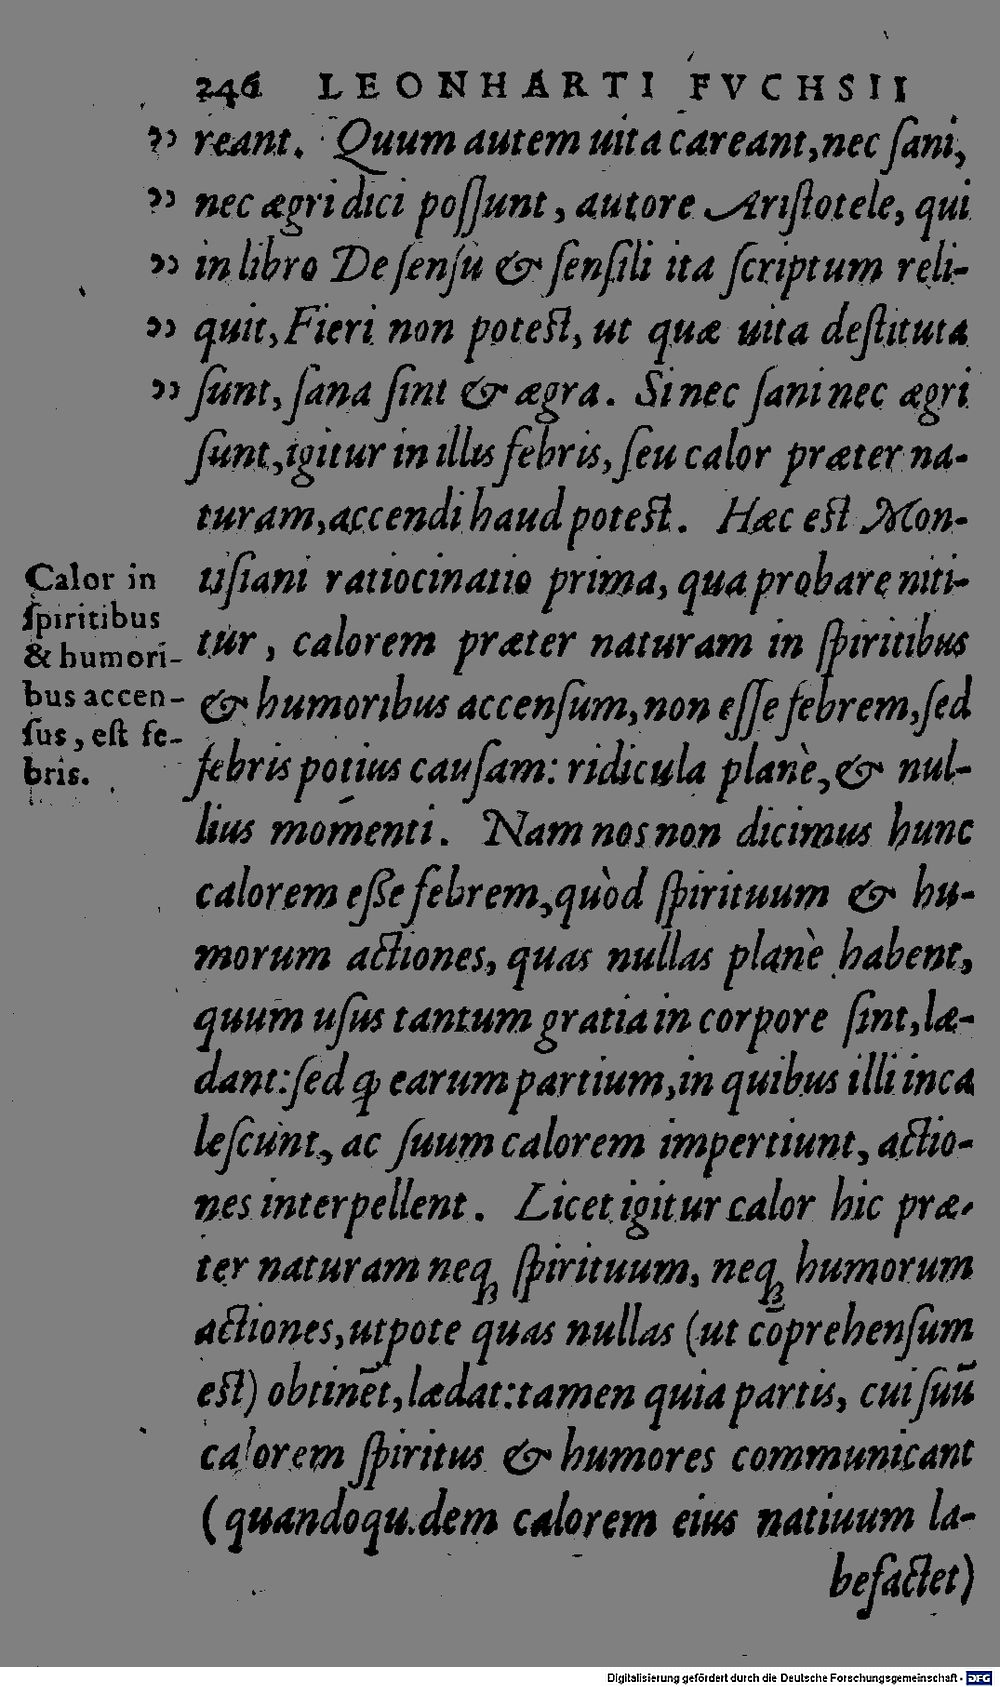 246 LEONHARTI FVCHSII
„ reant. Quum autem uita careant, nec ſani,
„ nec ægri dici poſſunt, autore Ariſtotele, qui
„ in libro De ſenſu & ſenſili ita ſcriptum reli-
„ quit, Fieri non poteſt, ut quæ uita deſtituta
„ ſunt, ſana ſint & ægra. Si nec ſani nec ægri
ſunt, igitur in illis febris, ſeu calor præter na-
turam, accendi haud poteſt. Hæc eſt Mon-
tiſiani ratiocinatio prima, qua probare niti-
tur, calorem præter naturam in ſpiritibus
& humoribus accenſum, non eſſe febrem, ſed
febris potius cauſam: ridicula planè, & nul-
lius momenti. Nam nos non dicimus hunc
calorem eſſe febrem, quòd ſpirituum & hu-
morum actiones, quas nullas planè habent,
quum uſus tantum gratia in corpore ſint, læ-
dant: ſed ꝙ earum partium, in quibus illi inca
leſcunt, ac ſuum calorem impertiunt, actio-
nes interpellent. Licet igitur calor hic præ-
ter naturam neqꝫ ſpirituum, neqꝫ humorum
actiones, utpote quas nullas (ut cōprehenſum
eſt) obtinēt, lædat: tamen quia partis, cui ſuū
calorem ſpiritus & humores communicant
(quandoquidem calorem eius natiuum la-
befactet)
Calor in
ſpiritibus
& humori-
bus accen-
ſus, eſt fe-
bris.
Digitalisierung gefördert durch die Deutsche Forschungsgemeinschaft - DFG